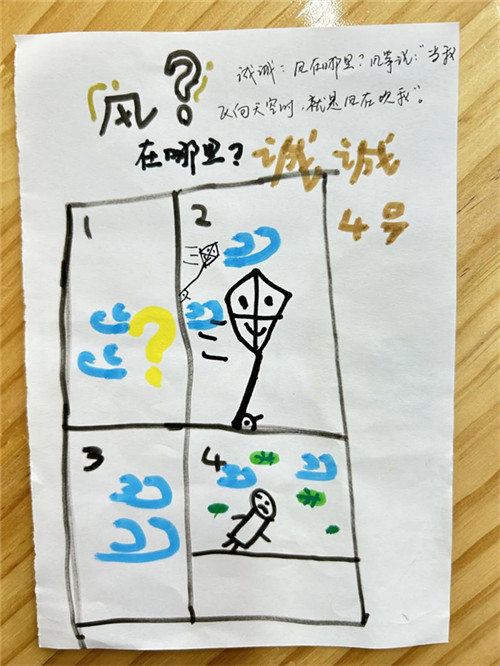 风?
诚诚：风在哪里？风筝说："当我
飞向天空时，就是风在吹我"。
在哪里？诚诚
4号
1
2
?
3
4